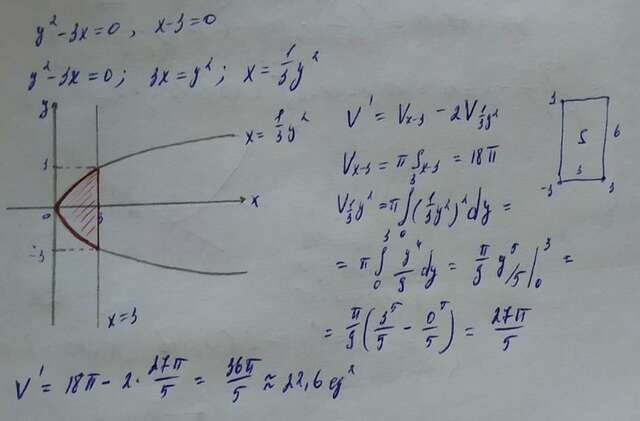 y²-3x=0, x-3=0
y²-3x=0; 3x=y²; x=1/3 y²
y
x=1/3 y²
3
0
3
x
-3
x=3
V' = Vₓ₋₃ - 2V 1/3 y²
Vₓ₋₃ = π Sₓ₋₃ = 18π
V 1/3 y² = π ∫₀³ (1/3 y²)² dy =
= π ∫₀³ y⁴/9 dy = π/9 y⁵/5 |₀³ =
= π/9 (3⁵/5 - 0⁵/5) = 27π/5
3
S
6
3
-3
3
V' = 18π - 2 · 27π/5 = 36π/5 ≈ 22,6 eg²